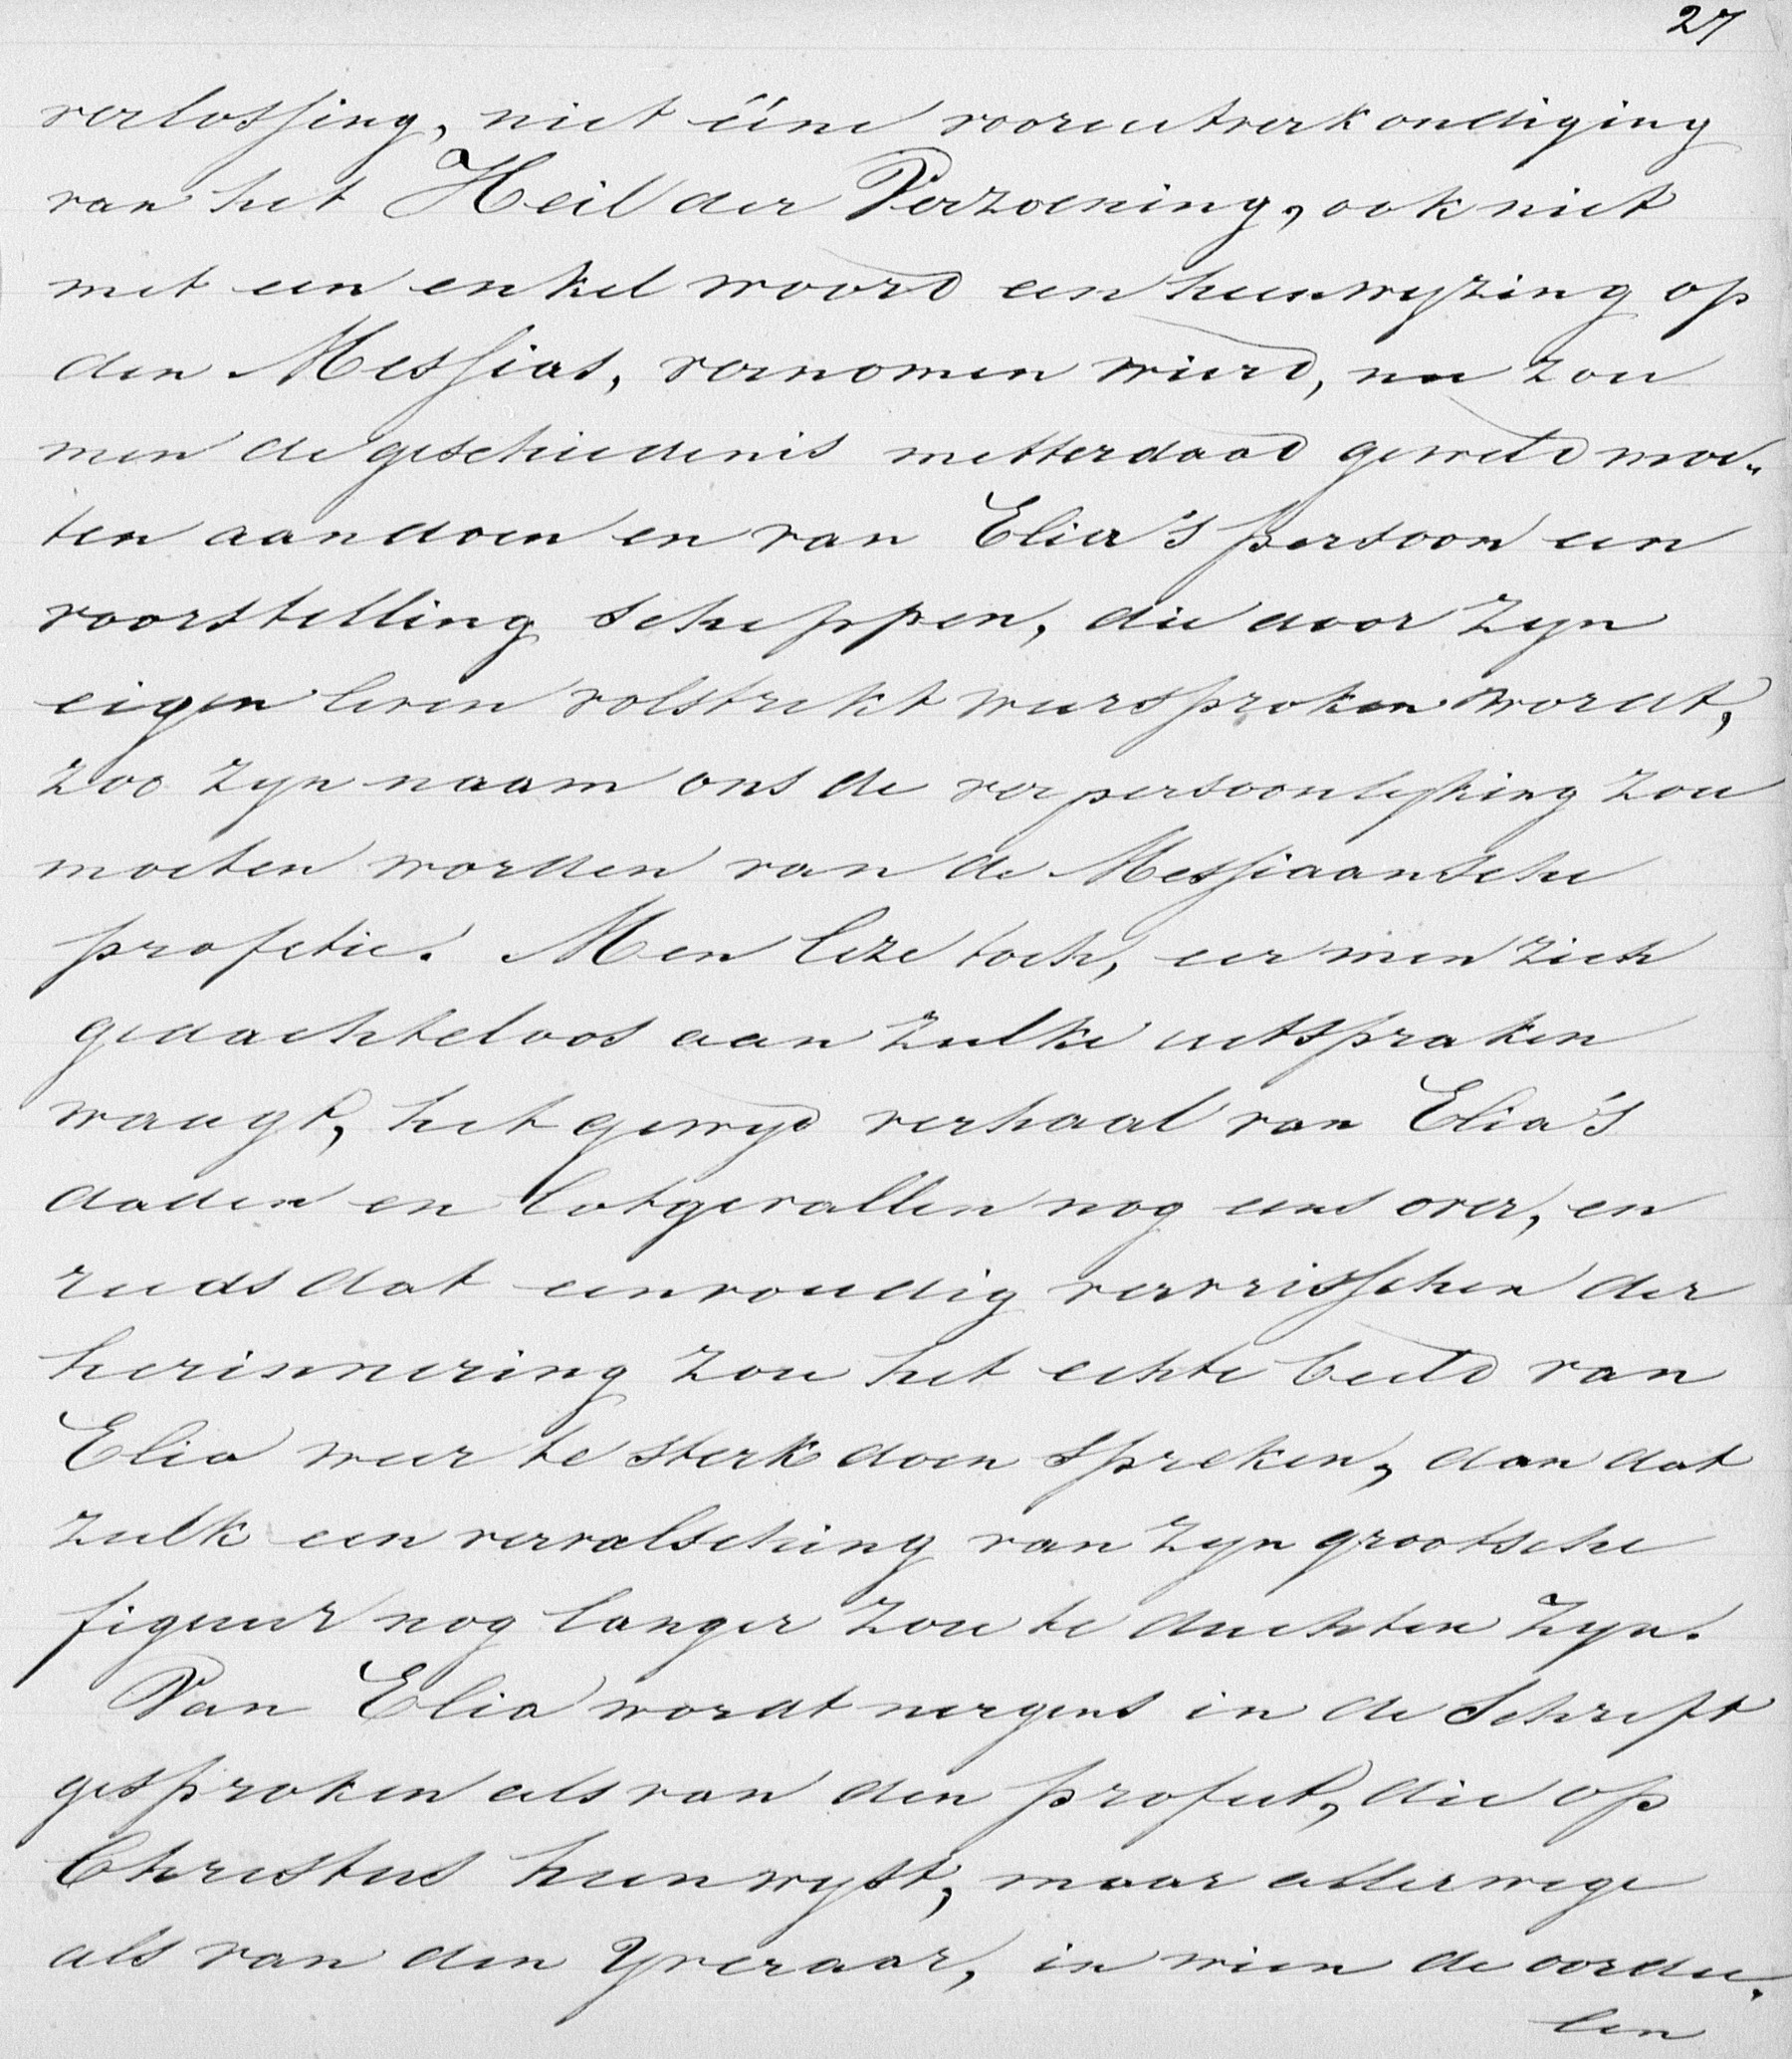 27
verlossing, niet ééne vooruitverkondiging
van het Heil der Verzoening, ook niet
met een enkel woord een heenwyzing op
den Messias, vernomen wierd, nu zou
men de geschiedenis metterdaad geweld moe-
ten aandoen en van Elia's persoon een
voorstelling scheppen, die door zyn
eigen leven volstrekt weersproken wordt,
zoo zyn naam ons de verpersoonlyking zou
moeten worden van de Messiaansche
profetie. Men leze toch, eer men zich
gedachteloos aan zulke uitspraken
waagt, het gewyd verhaal van Elia's
daden en lotgevallen nog eens over, en
reeds dat eenvoudig ververisschen der
herinnering zou het echte beeld van
Elia weer te sterk doen spreken, dan dat
zulk een vervalsching van zyn grootsche
figuur nog langer zou te duchten zyn.
Van Elia wordt nergens in de Schrift
gesproken als van den profeet, die op
Christus heenwyst, maar allerwege
als van den Yveraar, in wien de oordee-
len